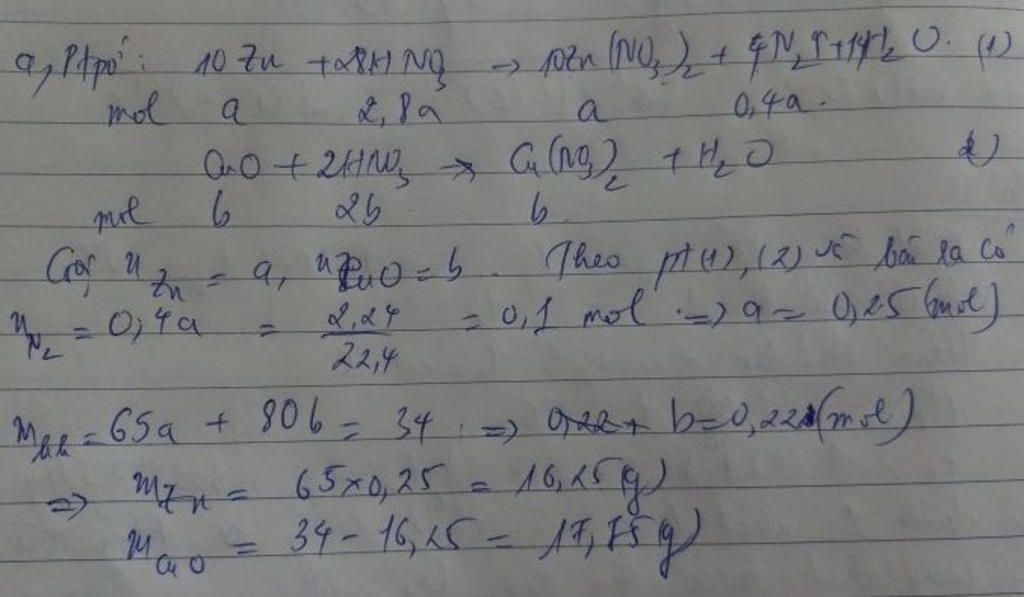 a, Ptpư: 10Zn + 28HNO₃ → 10Zn(NO₃)₂ + 4N₂↑ + 14H₂O. (1)
mol a 2,8a a 0,4a.
CuO + 2HNO₃ → Cu(NO₃)₂ + H₂O (2)
mol b 2b b
Gọi n_Zn = a, n_CuO = b. Theo pt (1), (2) và bài ra có
n_N₂ = 0,4a = 2,24/22,4 = 0,1 mol ⇒ a = 0,25 (mol)
m_hh = 65a + 80b = 34 ⇒ b = 0,221 (mol)
⇒ m_Zn = 65×0,25 = 16,25 (g)
m_CuO = 34 - 16,25 = 17,75 (g)